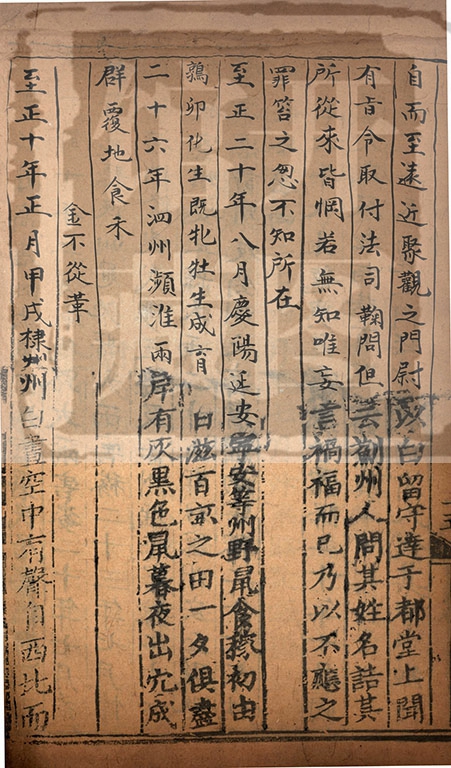 自而至遠近聚觀之門尉以白留守達于都堂上聞
有旨令取付法司鞠問但云薊州人問其姓名詰其
所從來皆惘若無知唯妄言禍福而已乃以不應之
罪笞之忽不知所在
至正二十年八月慶陽延安寧安等州野鼠食稼初由
鶉卵化生既牝牡生成育日滋百畝之田一夕俱盡
二十六年泗州瀕淮兩岸有灰黑色鼠暮夜出穴成
群覆地食禾
金不從革
至正十年正月甲戌棣州白晝空中有聲自西北而